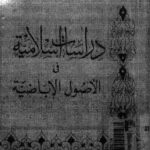 دراسات إسلامية
في
الأصول الإباضية